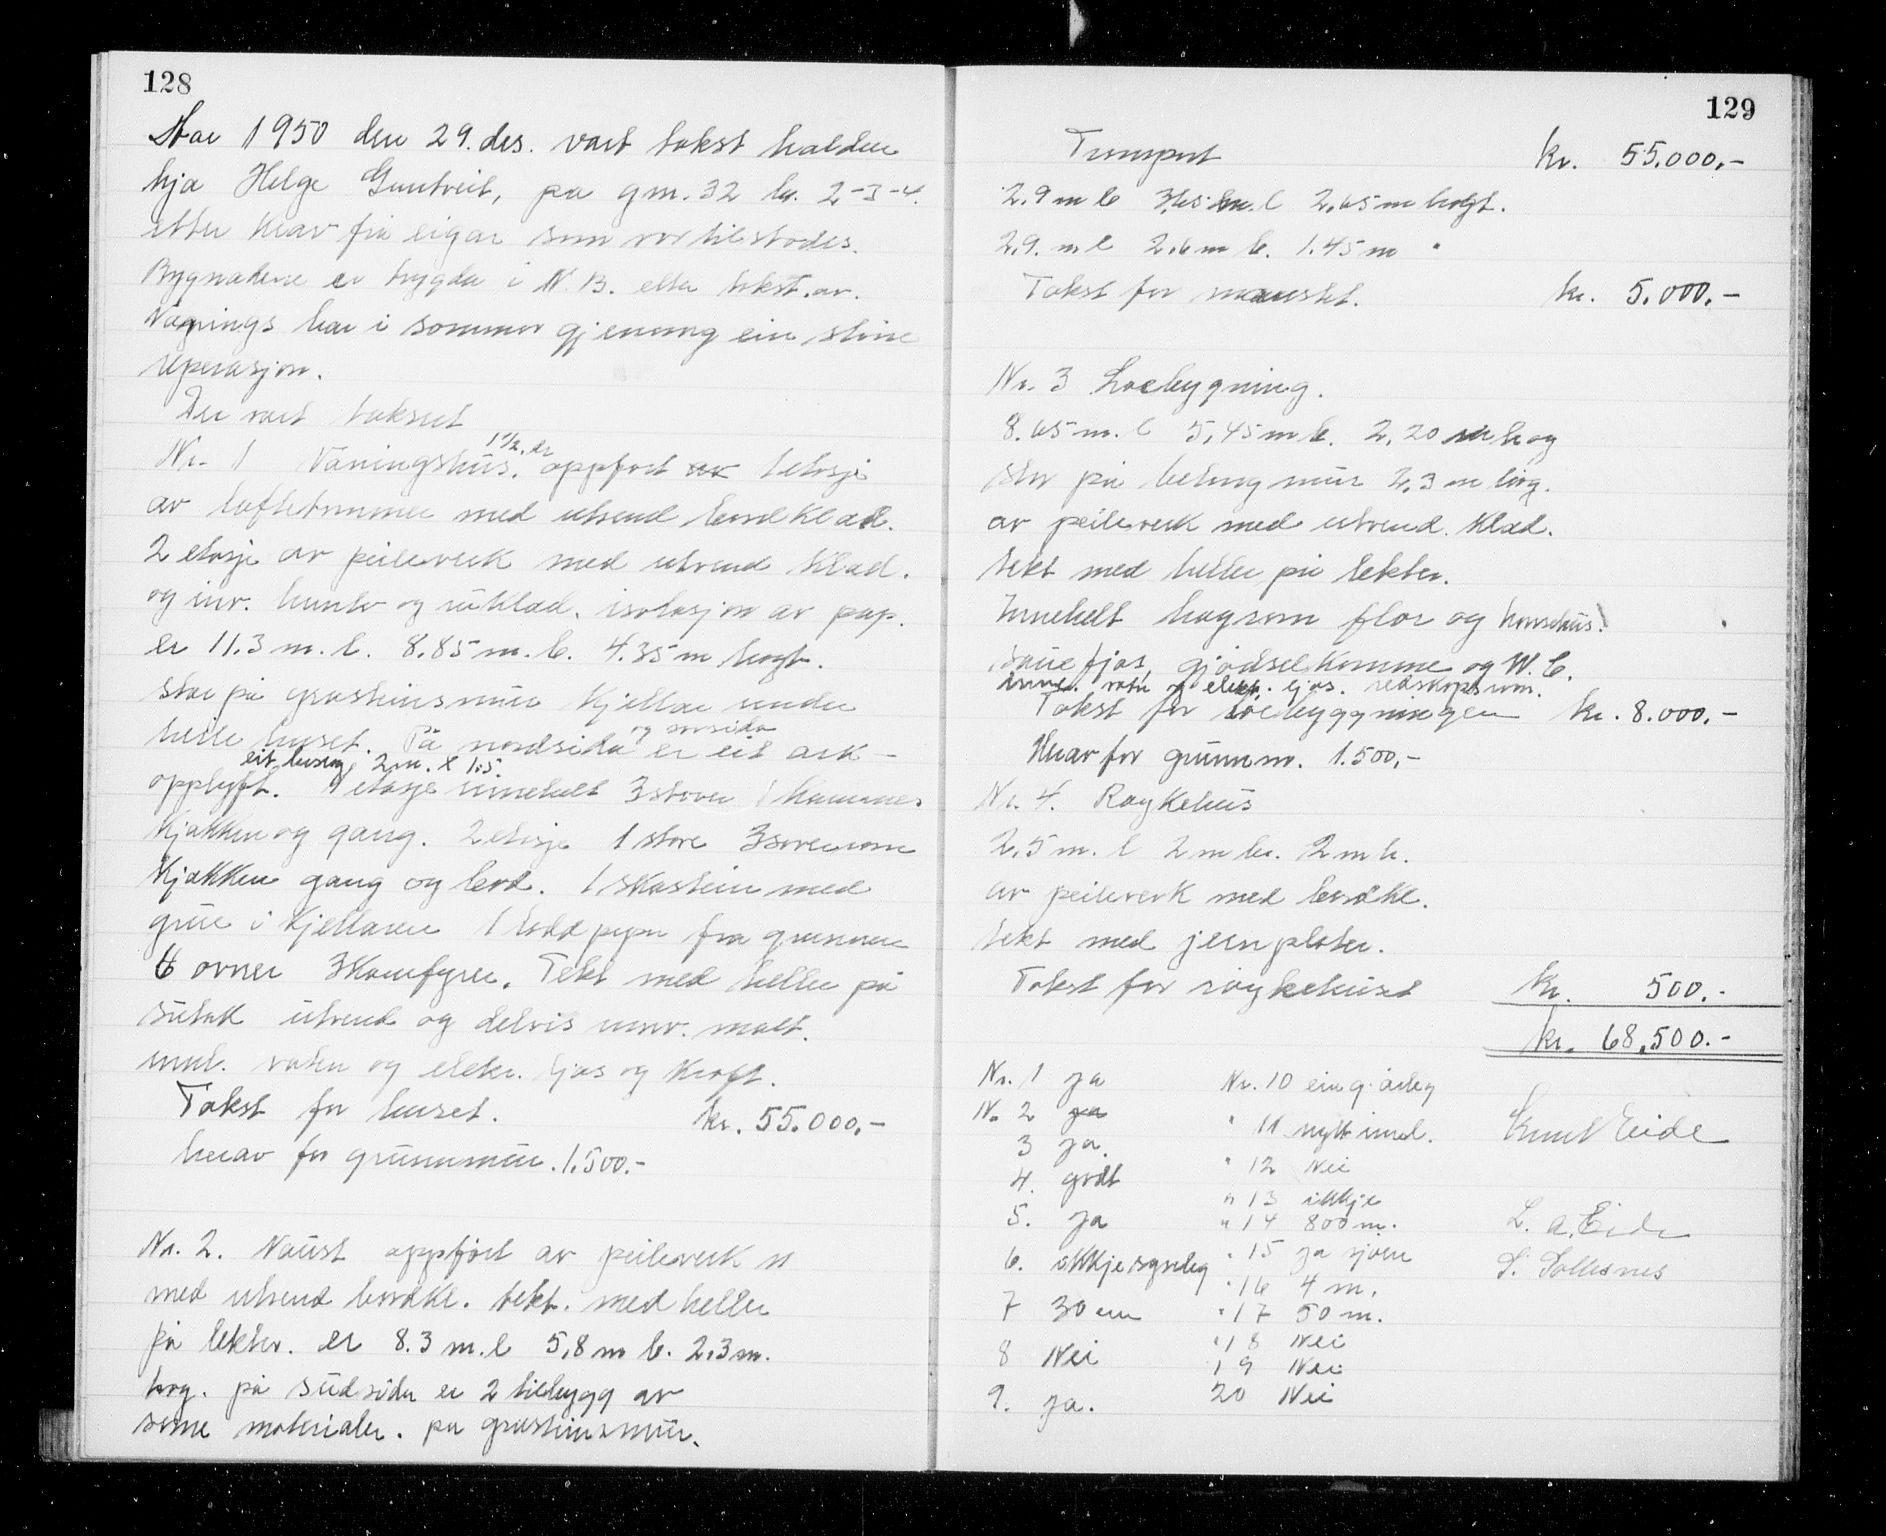 128
Aar 1950 den 29. des. vart takst halden
hja Helge Guntveit, pa gm. 32 br. 2-3-4.
etter krav fra eigar som var tilstades.
Bygnadene er trygda i N. B. etter takst av.
har i sommar gjenomg ein større
reperasjon.
Der vart taksert
Nr. 1 Vaningshus. 1 1/2. de oppført av 1 etasje
av loftetømmer med utvend bordklæd.
2 etasje av peileverk med utvend klæd.
og inv. og isolasjon av pap.
er 11.3 m. l. 8.85 m. b. 4.35 m høgt.
star på grasteinsmur kjellar under
heile huset. På nordsida og sørsida er eit ark-
opplyft. eit bislag 2 m. x 1.5. 1 etasje innehelt 3 stover 1 kammers
kjøkken og gang. 2 etasje 1 stove 3 soverom
kjøkken gang og bad. 1 skøstein med
grue i kjellaren 1 fra grunnen
6 ovner 3 komfyrer. Tekt med heller på
sutak utvend og delvis innv. malt.
innl. vatn og elekr. ljos og kraft.
Takst for huset. kr. 55.000,-
herav for grunnmur. 1.500.-
Nr. 2. Naust oppført av peileverk
med utvend bordkl. tekt. med heller
på lekter. er 8.3 m. l 5,8 m b. 2,3 m.
høg. på sudsida er 2 tilbygg av
same materialer. på grasteinsmur.
129
Transport kr. 55.000,-
2.9 m b 3,65 m. l 2,65 m høgt.
2.9. m l 2,6 m b. 1.45 m "
Takst for naustet. kr. 5.000.-
Nr. 3 Løebygning.
8.65 m. l 5,45 m b. 2,20 m høg
star på betongmur 2,3 m høg.
av peileverk med utvend. klæd.
tekt med heller på lekter.
Innehelt høyrom flor og hønsehus.
Sauefjøs, gjødselkomme og W. C.
innl. vatn og elekt. ljos. redskapsrom.
Takst for løebyggningen kr. 8.000.-
Herav for grunnm. 1.500,-
Nr. 4. Røykehus
2,5 m. l 2 m br. 2 m h.
av peileverk med bordkl.
tekt med jernplater.
Takst for røykehuset kr. 500.-
kr. 68.500.-
Nr. 1 ja
Nr. 2 ja
3 ja.
4. godt
5. ja
6. ikkje synleg
7 30 cm
8 Nei
9. ja.
Nr. 10 ein g. årleg
" 11 nytt innl.
" 12 Nei
" 13 ikkje
" 14 800 m.
" 15 ja sjøen
" 16 4 m.
" 17 50 m.
" 18 Nei
19 Nei
20 Nei
Knut Eide
L. A. Eide
S. Søllesnes